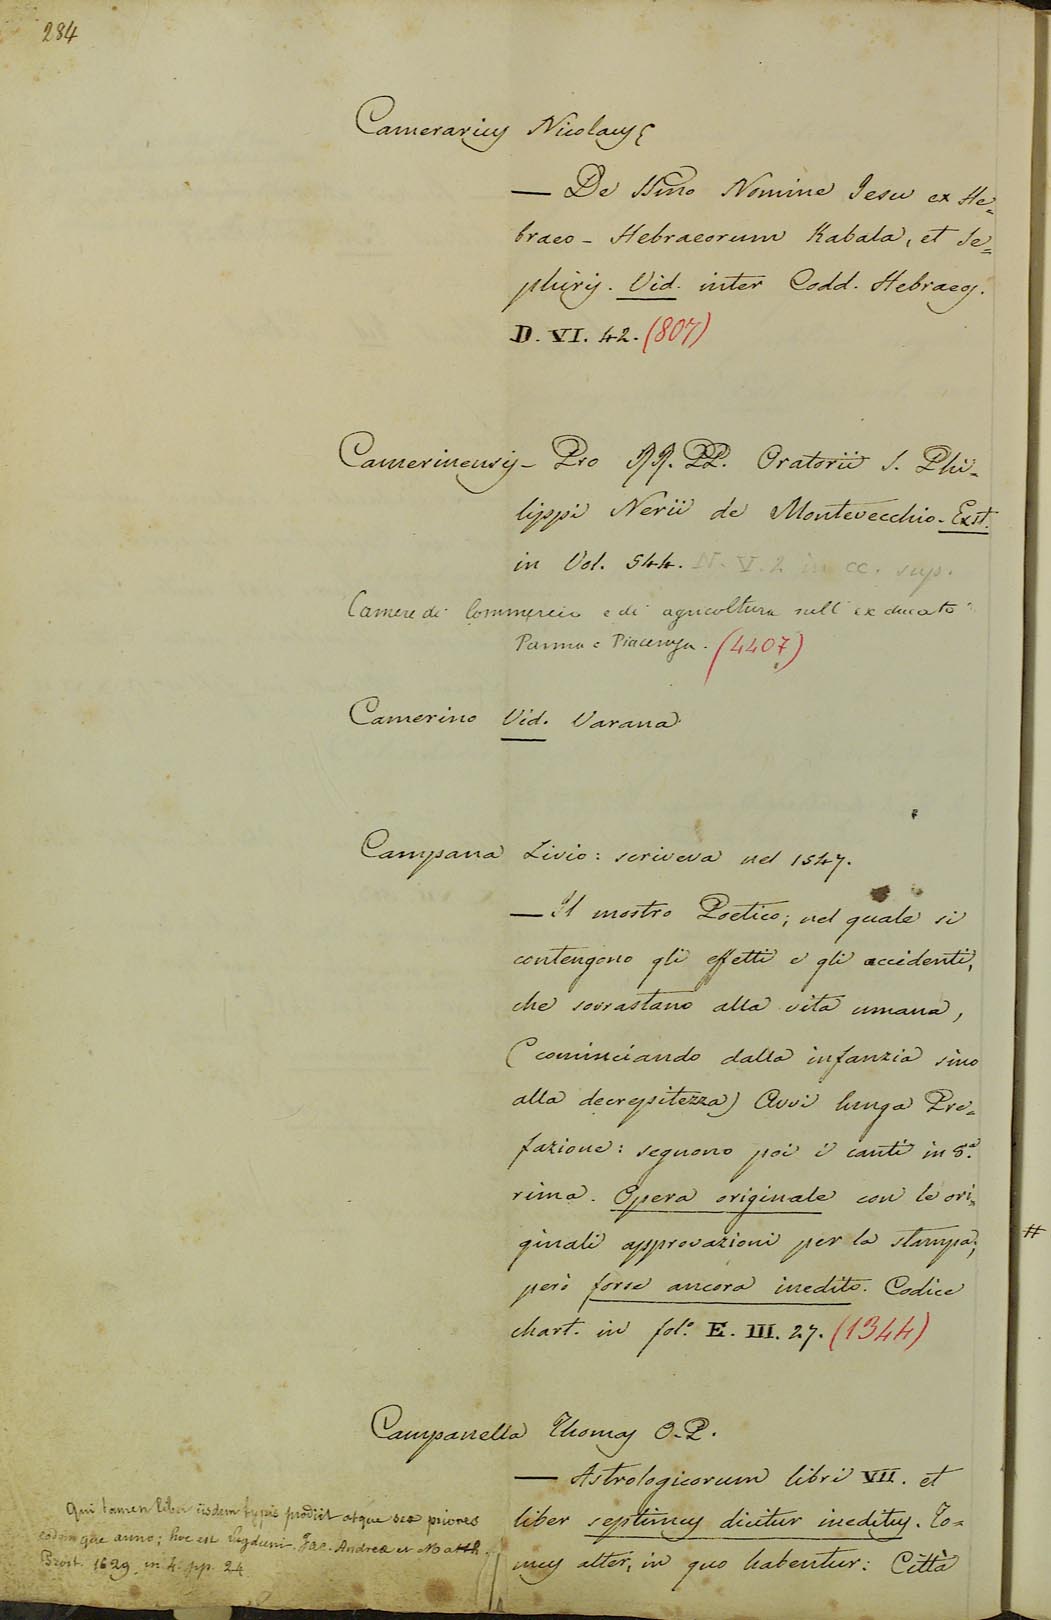 284
Camerarius Nicolaus
— De SSmo Nomine Jesu ex He=
braeo - Hebraeorum Kabala, et Se=
phiris. Vid. inter Codd. Hebraeos.
D. VI. 42. (807)
Camerinensis - Pro RR. PP. Oratorii S. Phi-
lippi Nerii de Montevecchio - Exst.
in Vol. 544. N. V. 2 in cc. sup.
Camere di Commercio e di agricoltura nell' ex ducato
Parma e Piacenza. (4407)
Camerino Vid. Varana
Campana Livio: scriveva nel 1547.
— Il mostro Poetico; nel quale si
contengono gli effetti e gli accidenti,
che sovrastano alla vita umana,
(cominciando dalla infanzia sino
alla decrepitezza) Avvi lunga Pre=
fazione: seguono poi i canti in 8.a
rima. Opera originale con le ori=
ginali approvazioni per la stampa;
però forse ancora inedita. Codice
chart. in fol.o E. III. 27. (1344)
#
Campanella Thomas O. P.
— Astrologicorum libri VII. et
liber septimus dicitur ineditus. To=
mus alter, in quo habentur: Città
Qui tamen liber iisdem typis prodiit atque sex priores
eodemque anno; hoc est Lugduni. Jac. Andrea et Matth.
Prost. 1629. in 4. pp. 24